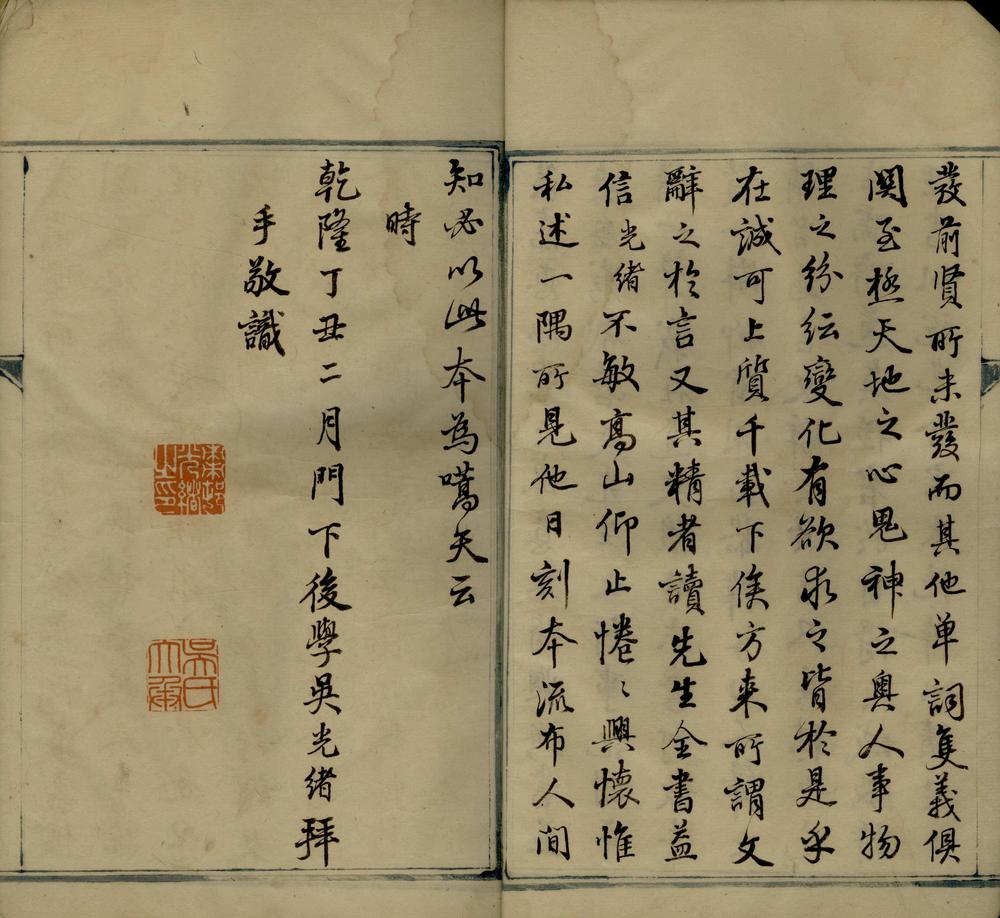 發前賢所未發而其他单詞隻義俱
関至極天地之心鬼神之奧人事物
理之紛紜變化有欲求之皆於是乎
在誠可上質千載下俟方来所謂文
辭之於言又其精者讀先生全書益
信光緒不敏高山仰止惓〻興懷惟
私述一隅所見他日刻本流布人间
知必以此本為嚆矢云
時
乾隆丁丑二月門下後學吳光緒拜
手敬識